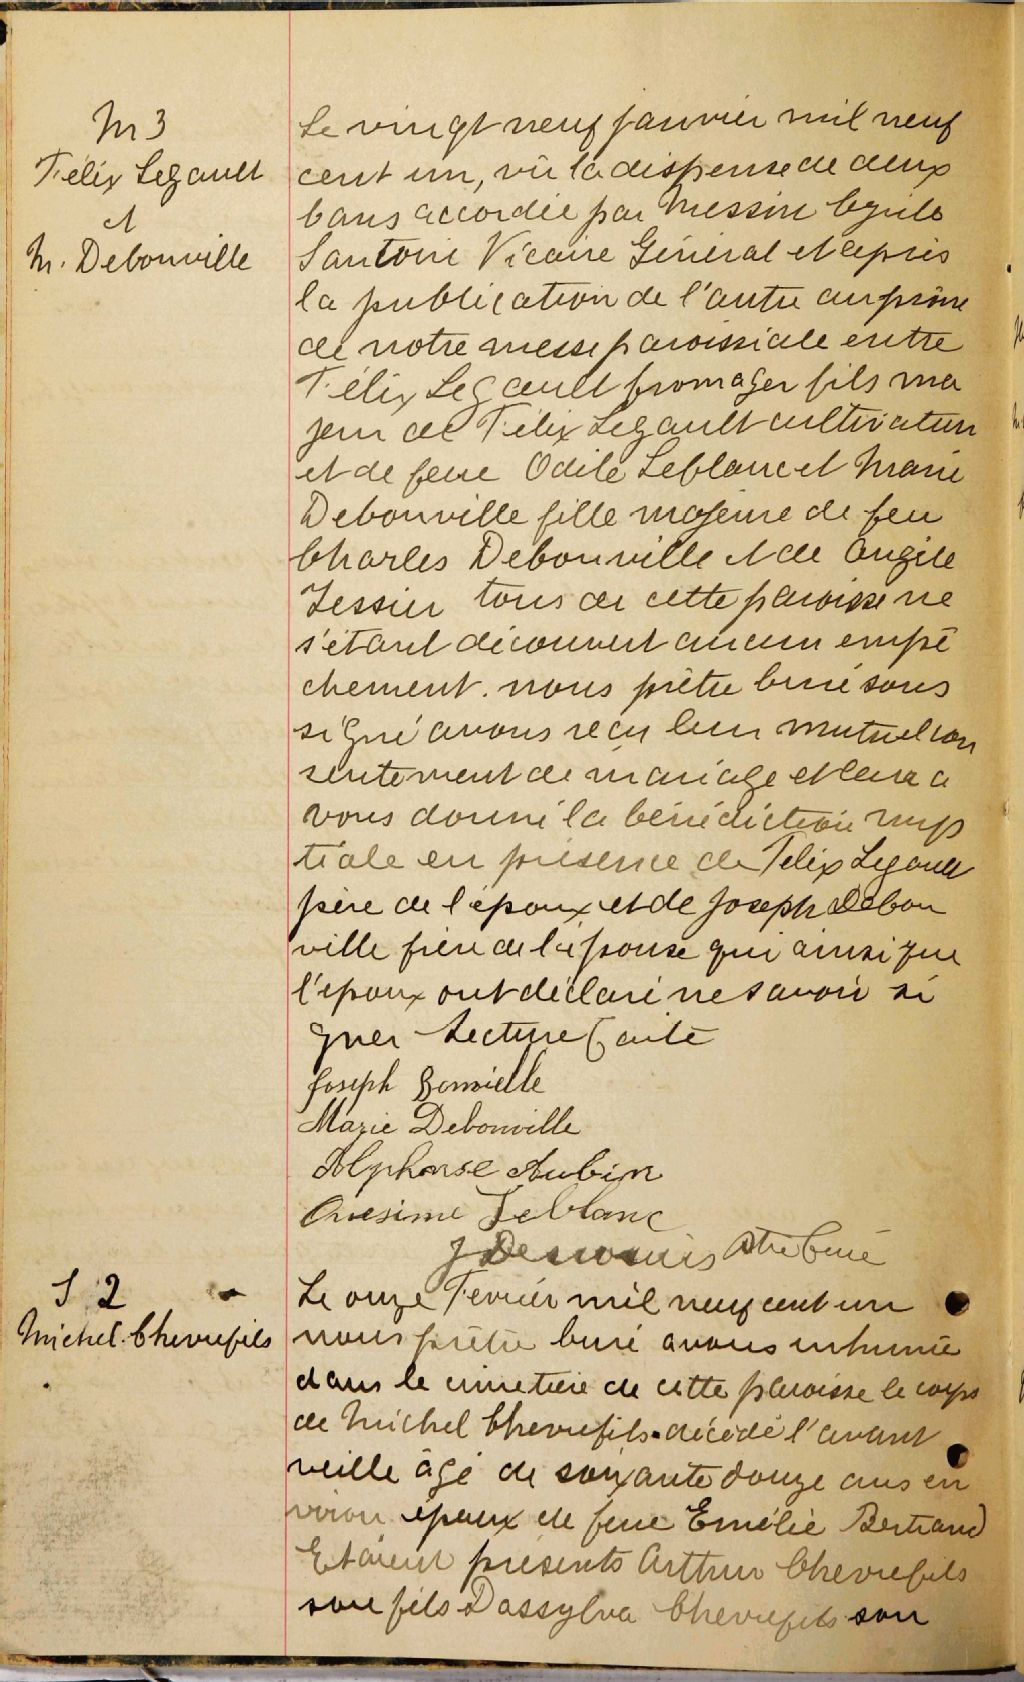 M 3
Félix Legault
et
M. Debonville
Le vingt neuf janvier mil neuf
cent un, vû la dispense de deux
bans accordée par Messire Cyrile
Santoire Vicaire Général et après
la publication de l'autre au prône
de notre messe paroissiale entre
Félix Legault fromager fils ma
jeur de Félix Legault cultivateur
et de feue Odile Leblanc et Marie
Debonville fille majeure de feu
Charles Debonville et de Angèle
Tessier tous de cette paroisse ne
s'étant découvert aucun empê
chement. nous prêtre curé sous
signé avons reçu leur mutuel con
sentement de mariage et leur a
vons donné la bénédiction nup
tiale en présence de Félix Legault
père de l'époux et de Joseph Debon
ville frère de l'épouse qui ainsi que
l'époux ont déclaré ne savoir si
gner Lecture faite
Joseph Bonville
Marie Debonville
Alphonse Aubin
Onesime Leblanc
J Ptre Curé
S 2
Michel Chevrefils
Le onze Fevrier mil neuf cent un
nous prêtre curé avons inhumé
dans le cimetière de cette paroisse le corps
de Michel Chevrefils décédé l'avant
veille âgé de soixante douze ans en
viron époux de feue Emélie Bertrand
Etaient présents Arthur Chevrefils
son fils Dassylva Chevrefils son